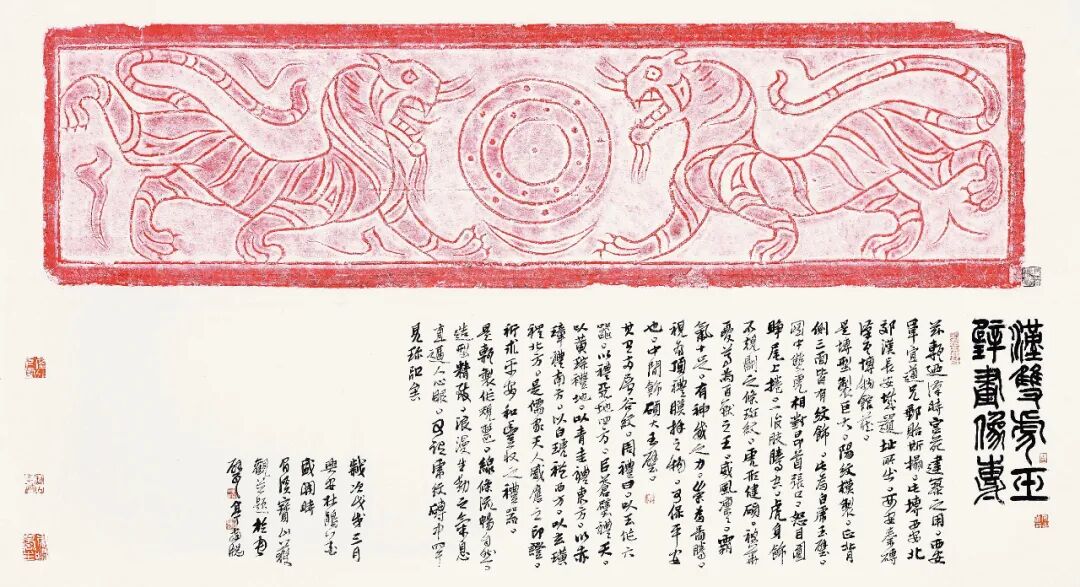 漢雙虎玉
璧畫像專
茲甎迺漢時宮苑建築之用。西安
畢宜道兄郵貽斯搨。此塼西安北
郊漢長安城遺址所出。西安秦磚
漢瓦博物館藏。
是塼型製巨大。陽紋模製。正背
側三面皆有紋飾。此為白虎玉璧。
圖中雙虎相對昂首張口。怒目圓
睜尾上捲。一派 騰 虎身飾
不規則之條斑紋。虎形健碩。視其
為百獸之王。威風凜凜。霸
氣十足。有神 之力。
視為頂禮膜拜之物。可保平安
也。中間飾碩大玉璧。
其 谷紋。周禮曰。以玉作六
器。以禮天地四方。以蒼璧禮天。
以黃琮禮地。以青圭禮東方。以赤
璋禮南方。以白琥禮西方。以玄璜
禮北方。是儒家天人感應之印證。
祈求平安和豐收之禮器。
是甎製作頗 線條流暢自然。
造型精致。浪漫生動之氣息
直逼人心眼。 虎紋磚中罕
見珍品矣。
歲次戊戌三月
興安杜鵑山
盛開時
百漢寶山
觀並題於